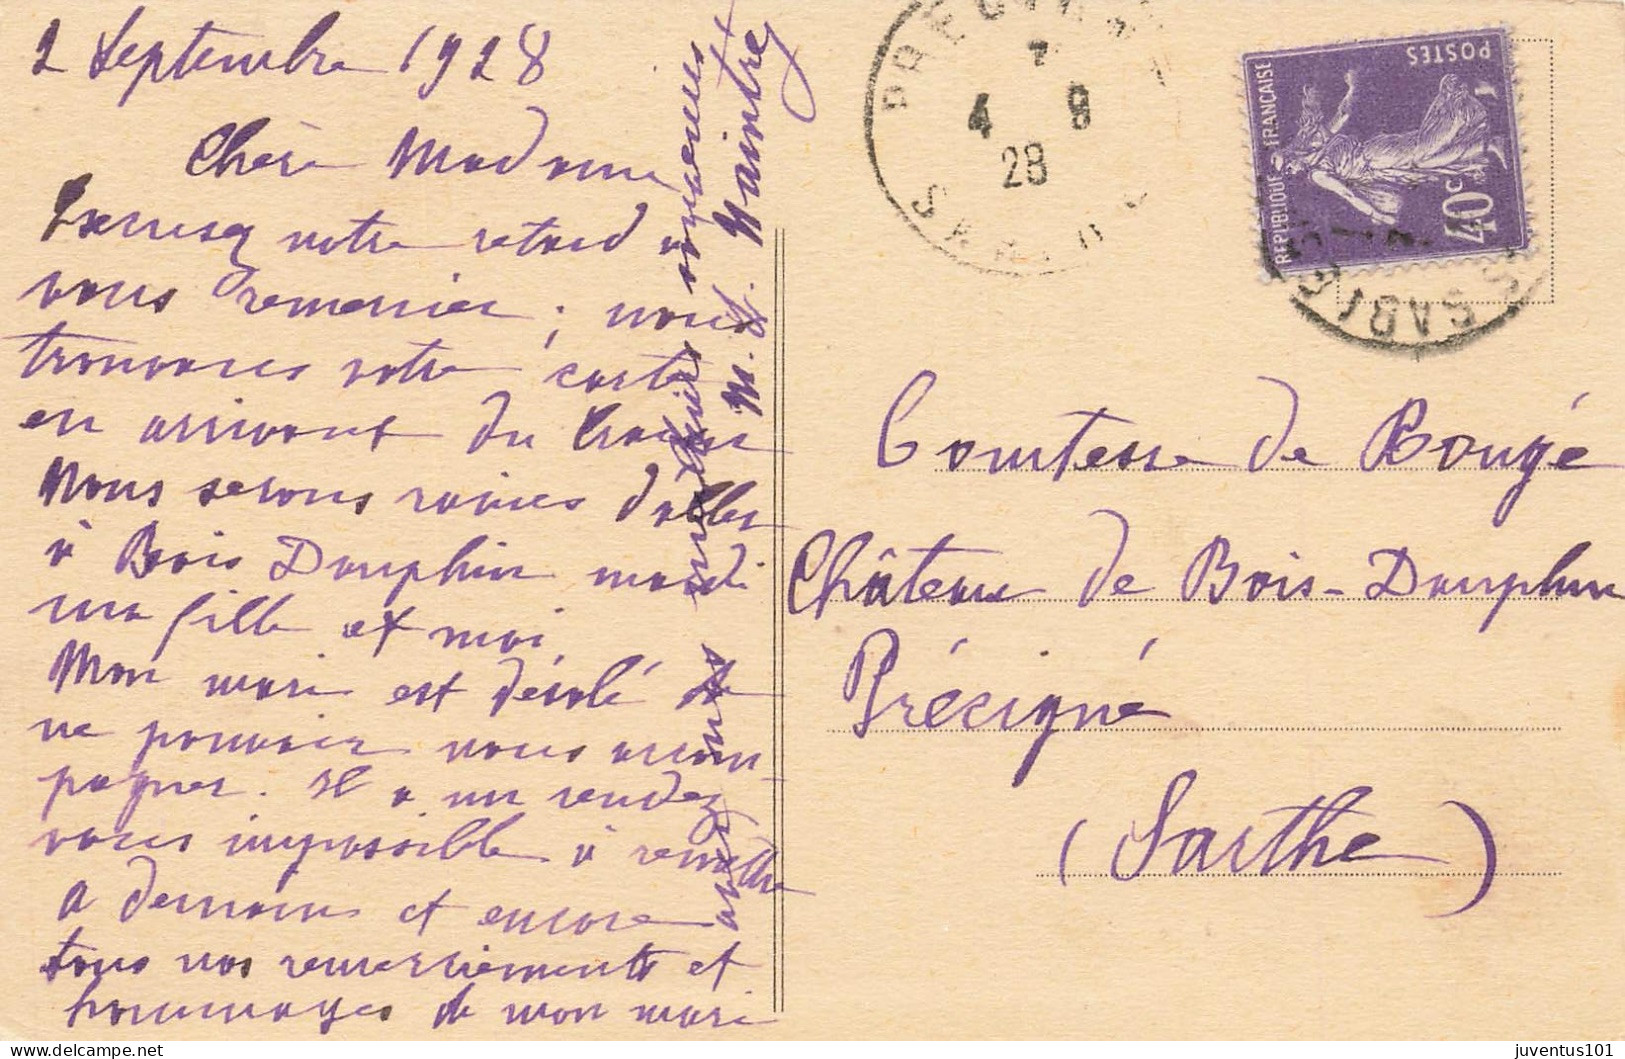 2 Septembre 1928
Chère Madame
Excusez notre retard à
vous remercier ; nous
trouvons votre carte
en arrivant du
Nous serons ravies d'aller
à Bois Dauphin mardi
ma fille et moi
Mon mari est désolé de
ne pouvoir nous accom-
pagner. Il a un rendez
vous impossible à remettre
A demain et encore
tous nos remerciements et
hommages de mon mari
avec mes meilleurs souvenirs
M. L. Maintre
PRECIGNE
4 9
28
SARTHE
REPUBLIQUE FRANCAISE
POSTES
40c
SABLE
Comtesse de Bougé
Château de Bois-Dauphin
Précigné
(Sarthe)
juventus101